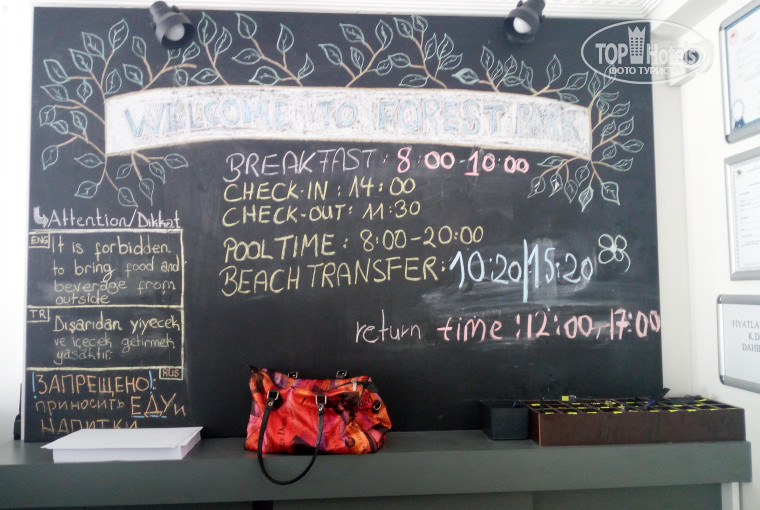 WELCOME TO FOREST PARK
BREAKFAST: 8:00-10:00
CHECK-IN: 14:00
CHECK-OUT: 11:30
POOL TIME: 8:00-20:00
BEACH TRANSFER: 10:20|15:20
return time: 12:00, 17:00
Attention/Dikkat
ENG
It is forbidden
to bring food and
beverage from
outside
TR
Dışarıdan yiyecek
ve içecek getirmek
yasaktır.
RUS
!ЗАПРЕЩЕНО!
приносить ЕДУ и
НАПИТКИ
TOP Hotels
ФОТО ТУРИСТА
FİYATLA
K.D
DAHİ